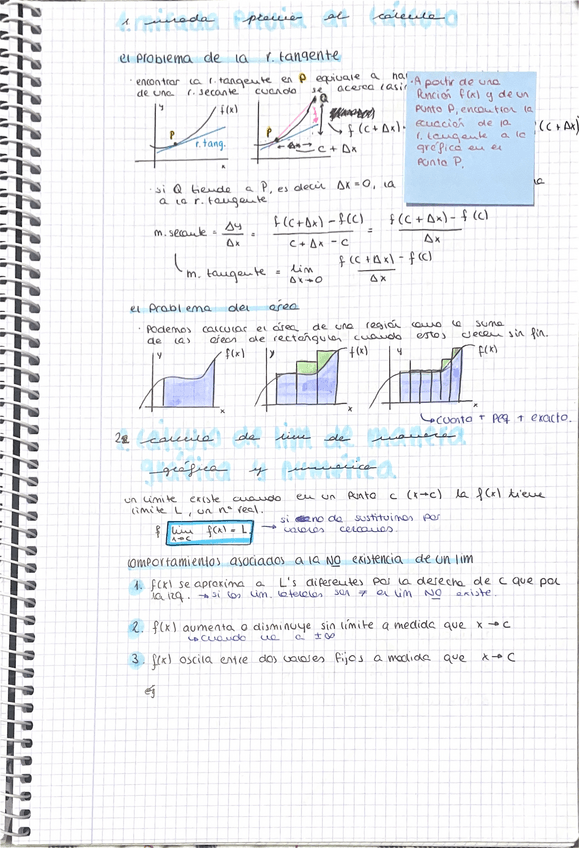 1. mirada previa al cálculo
el problema de la r. tangente
· encontrar la r. tangente en P equivale a
de una r. secante cuando se acerca
· A partir de una
función f(x) y de un
punto P, encuentran la
ecuación de la
r. tangente a la
gráfica en el
punto P.
y f(x) P r. tang. x
y P Q Δx c + Δx x
f (c+Δx)
(c+Δx)
· si Q tiende a P, es decir Δx=0, la
a la r. tangente
m. secante = Δy/Δx = f(c+Δx) - f(c) / c + Δx - c = f(c+Δx) - f(c) / Δx
m. tangente = lim Δx→0 f(c+Δx) - f(c) / Δx
el problema del área
· Podemos calcular el área de una región como la suma
de las áreas de rectángulos cuando estos crecen sin fin.
y f(x) x
y f(x) x
y f(x) x
↳ cuanto + peq + exacto.
2. cálculo de lim de manera
gráfica y numérica
un límite existe cuando en un punto c (x→c) la f(x) tiene
límite L, un nº real.
lim x→c f(x) = L. → si no da sustituimos por
valores cercanos
comportamientos asociados a la NO existencia de un lim
1. f(x) se aproxima a L's diferentes por la derecha de c que por
la izq. → si los lim. laterales son ≠ el lim NO existe.
2. f(x) aumenta o disminuye sin límite a medida que x→c
↳ cuando va a ±∞
3 f(x) oscila entre dos valores fijos a medida que x→c
ej